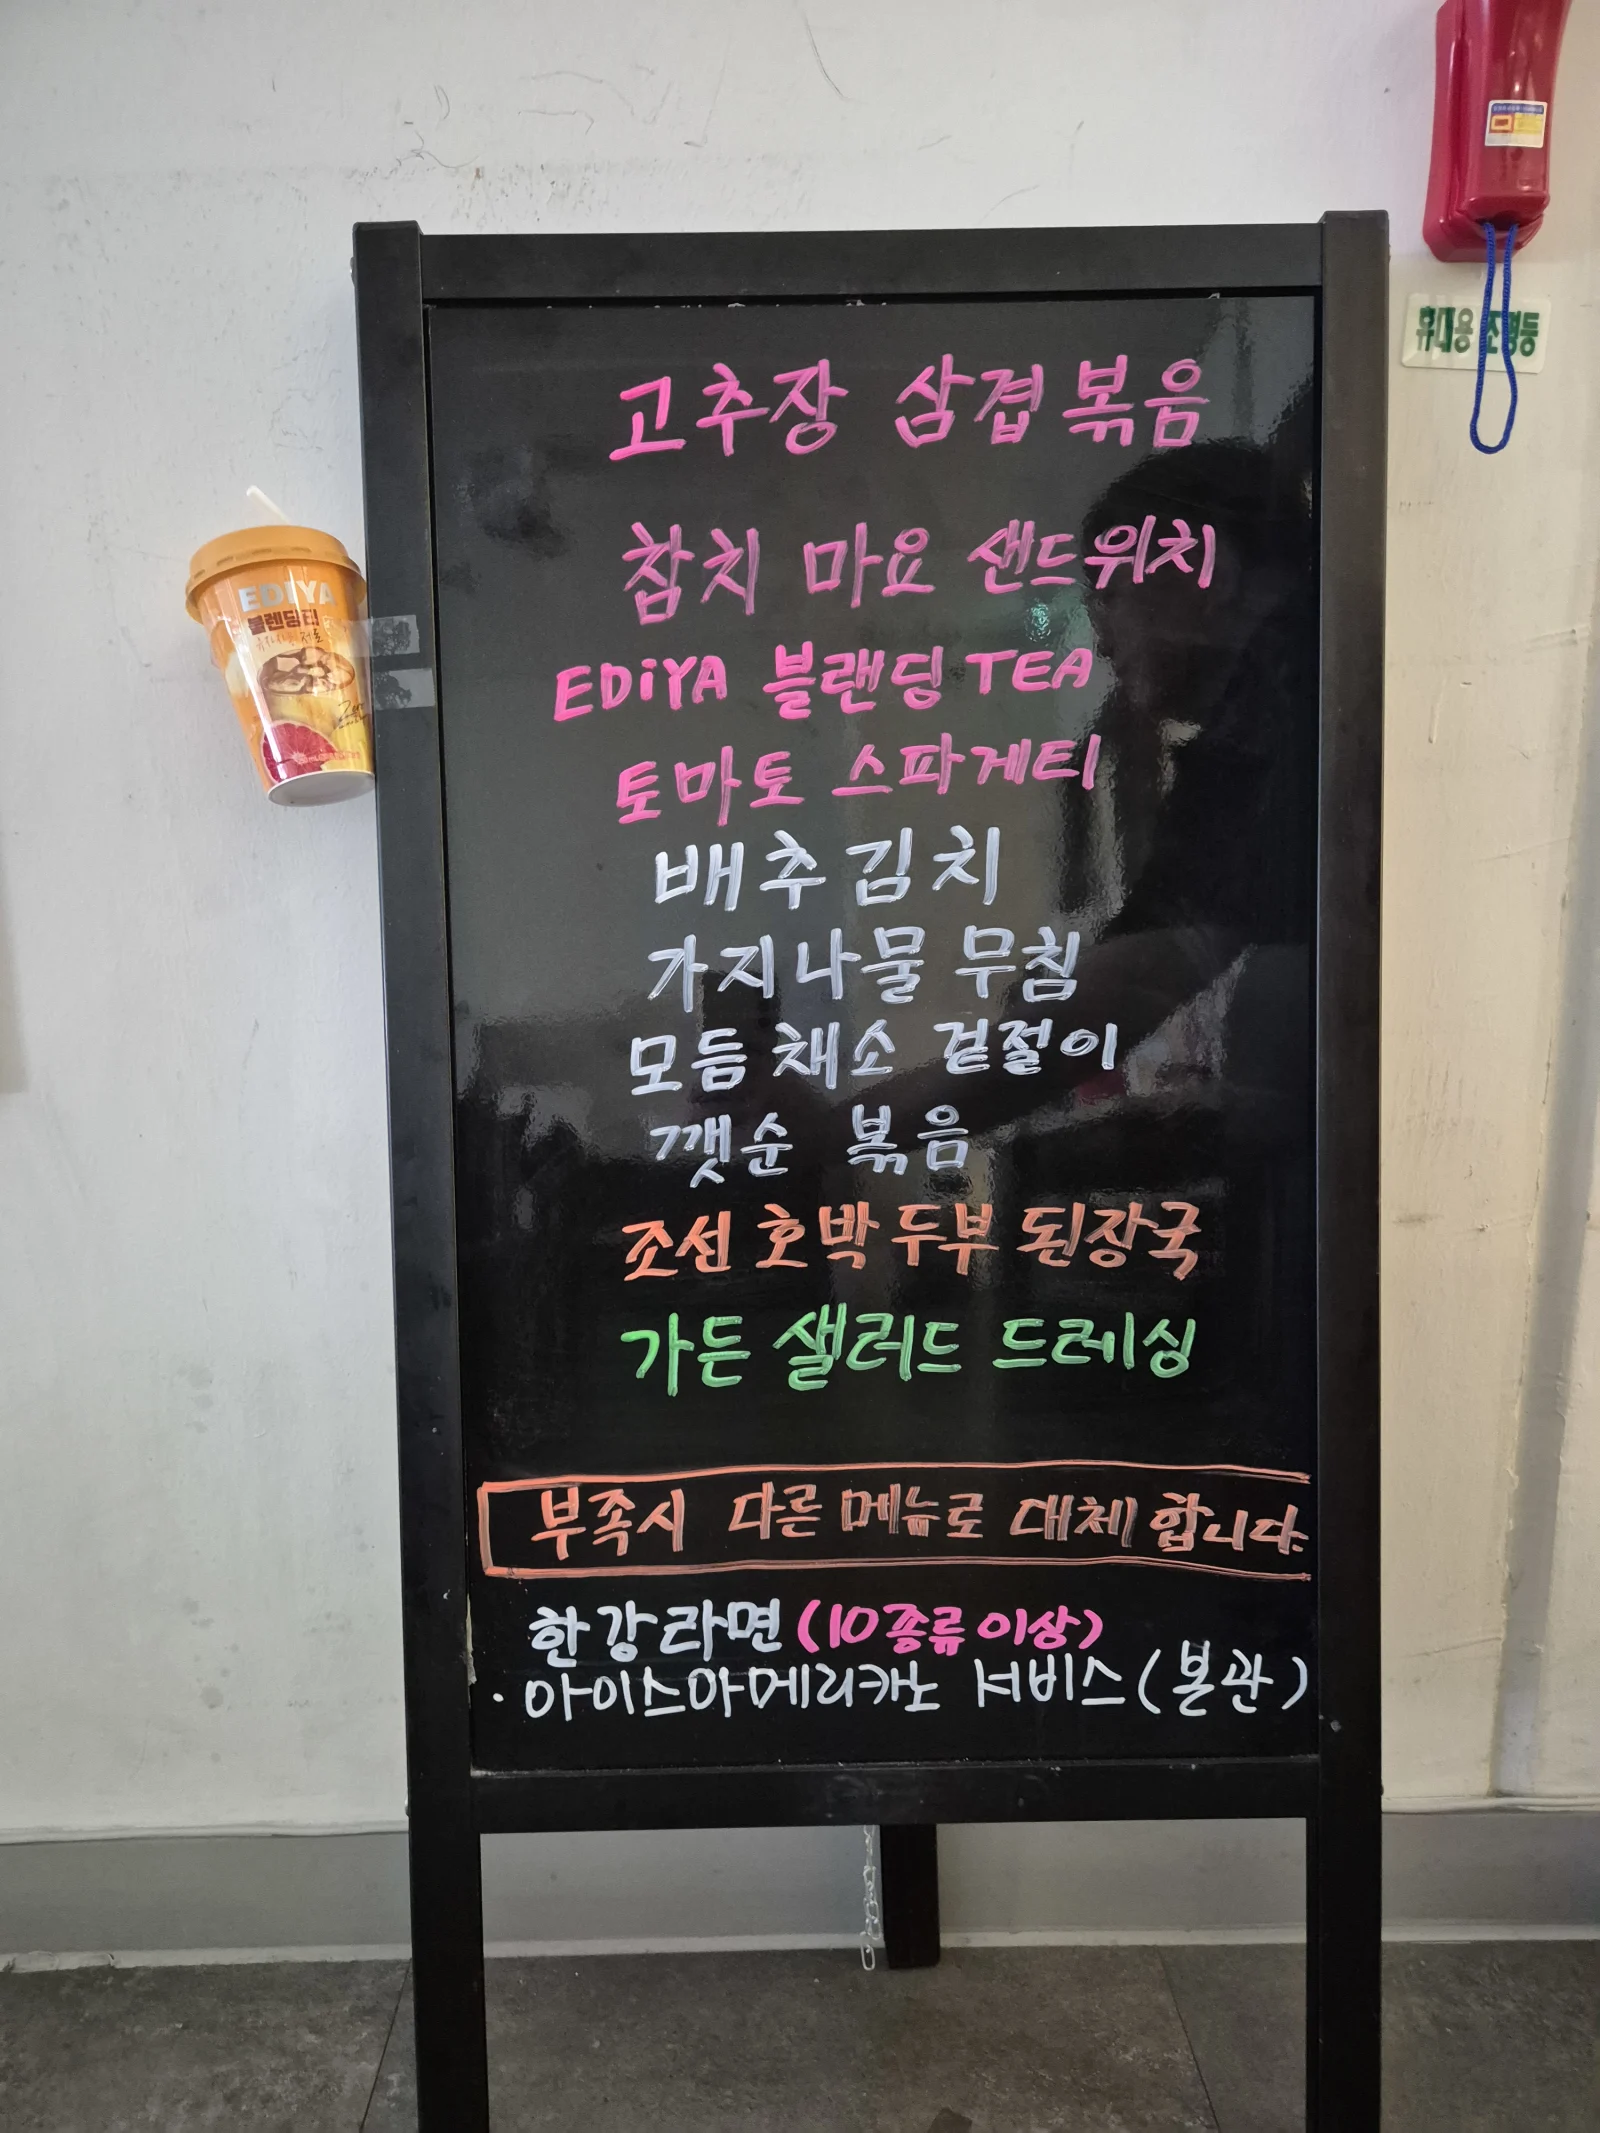 휴대용 조명등
고추장 삼겹볶음
참치 마요 샌드위치
EDiYA 블랜딩 TEA
토마토 스파게티
배추김치
가지나물 무침
모듬 채소 겉절이
깻순 볶음
조선 호박 두부 된장국
가든 샐러드 드레싱
부족시 다른 메뉴로 대체 합니다.
한강라면 (10종류 이상)
· 아이스아메리카노 서비스 (본관)
EDIYA
블렌딩티